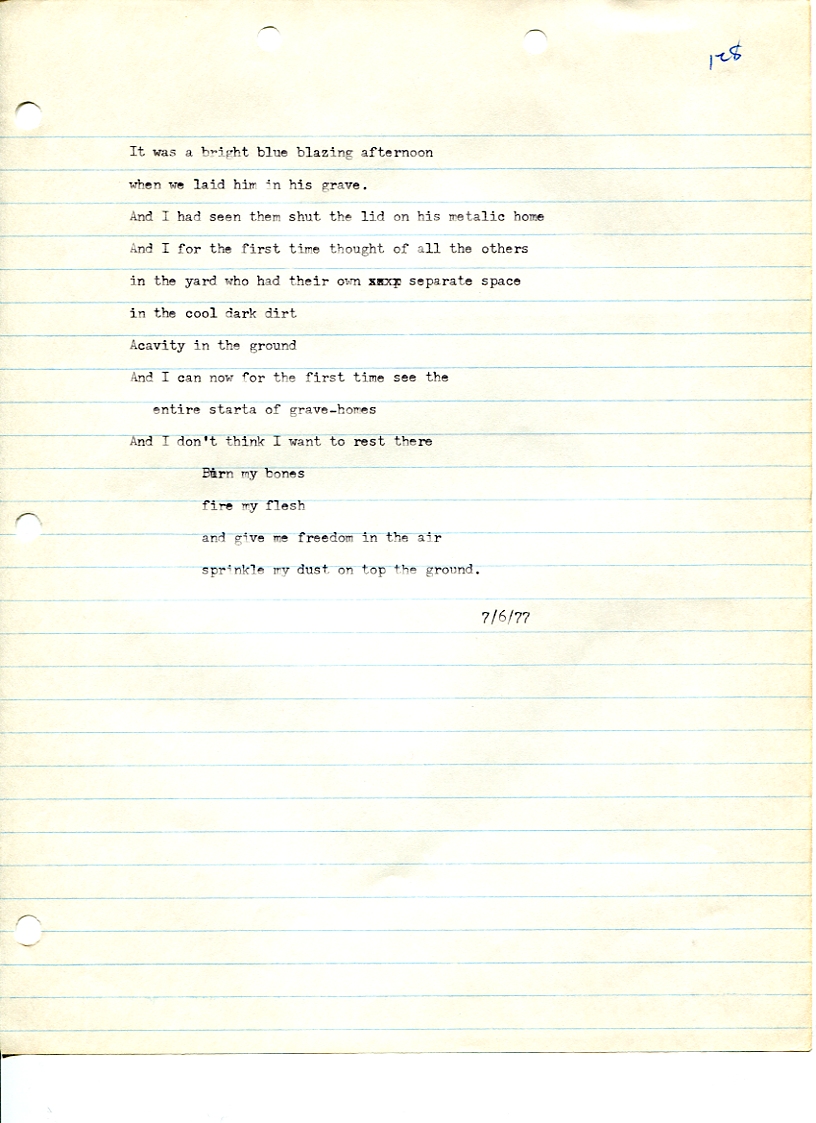 128
It was a bright blue blazing afternoon
when we laid him in his grave.
And I had seen them shut the lid on his metalic home
And I for the first time thought of all the others
in the yard who had their own separate space
in the cool dark dirt
Acavity in the ground
And I can now for the first time see the
entire starta of grave-homes
And I don't think I want to rest there
Burn my bones
fire my flesh
and give me freedom in the air
sprinkle my dust on top the ground.
7/6/77